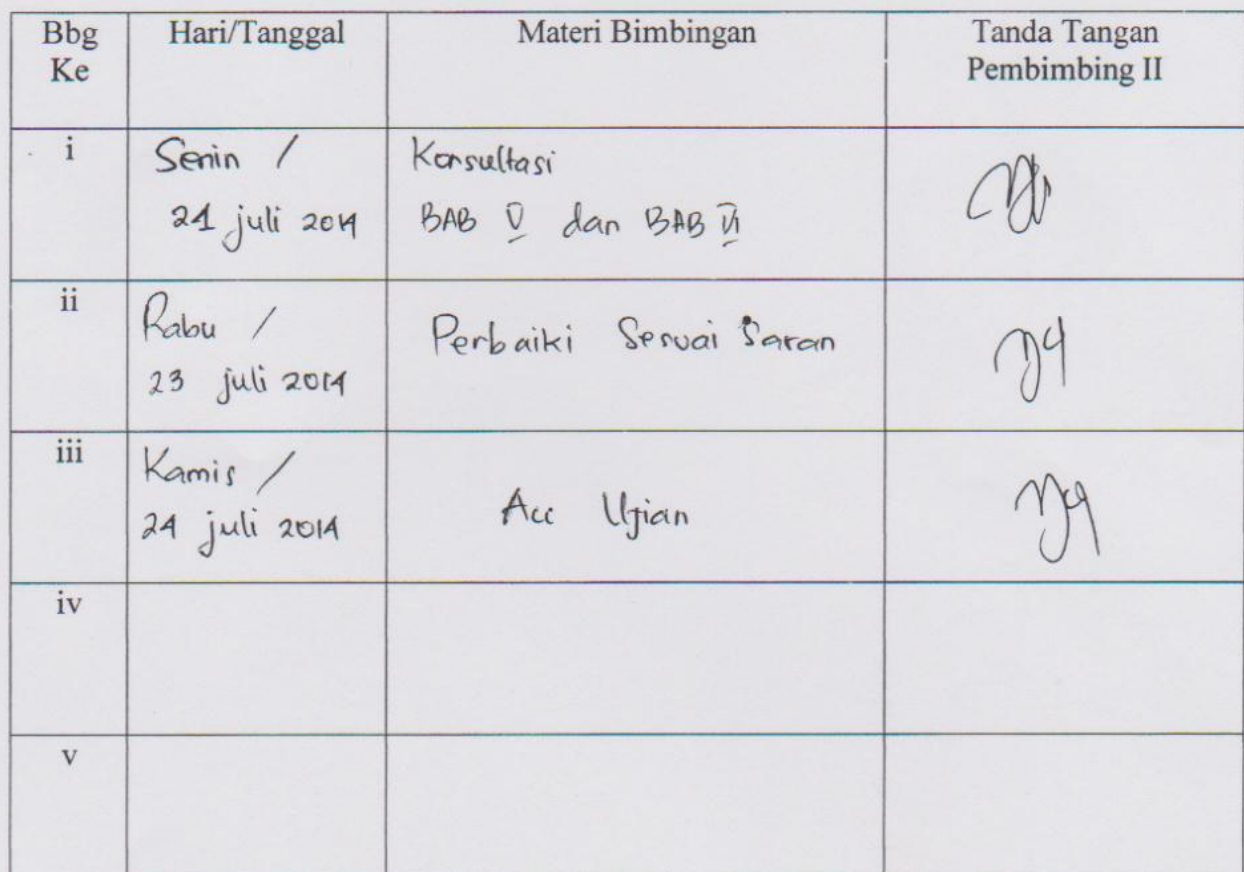 Bbg Ke
Hari/Tanggal
Materi Bimbingan
Tanda Tangan
Pembimbing II
i
Senin /
21 juli 2014
Konsultasi
BAB V dan BAB VI
ii
Rabu /
23 juli 2014
Perbaiki Sesuai Saran
iii
Kamis /
24 juli 2014
Acc Ujian
iv
v